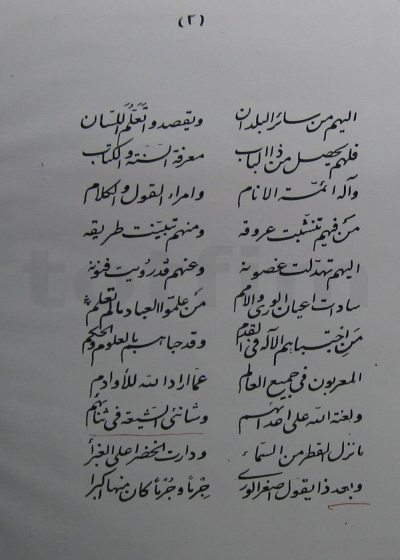 (٢)
اليهم من سائر البلدان ويقصدوا تعلم اللسان
فلهم يحصل من ذا الباب معرفة السنة والكتاب
وآله ائمة الانام وامراء القول والكلام
من فيهم تنشبت عروقه ومنهم تبينت طريقه
اليهم تهدلت غصونه وعنهم قد رويت فنونه
سادات اعيان الورى والامم من علموا العباد مالم تعلم
من اجتباهم الآله في القدم وقد حباهم بالعلوم والحكم
المعربون في جميع العالم عما اراد الله للأوادم
ولعنة الله على اعدائهم وشانئي الشيعة في ثنائهم
مانزل القطر من السماء ودارت الخضرا على الغبراء
وبعد ذا يقول اصغر الورى جرماً وجرماً كان منها اكبرا